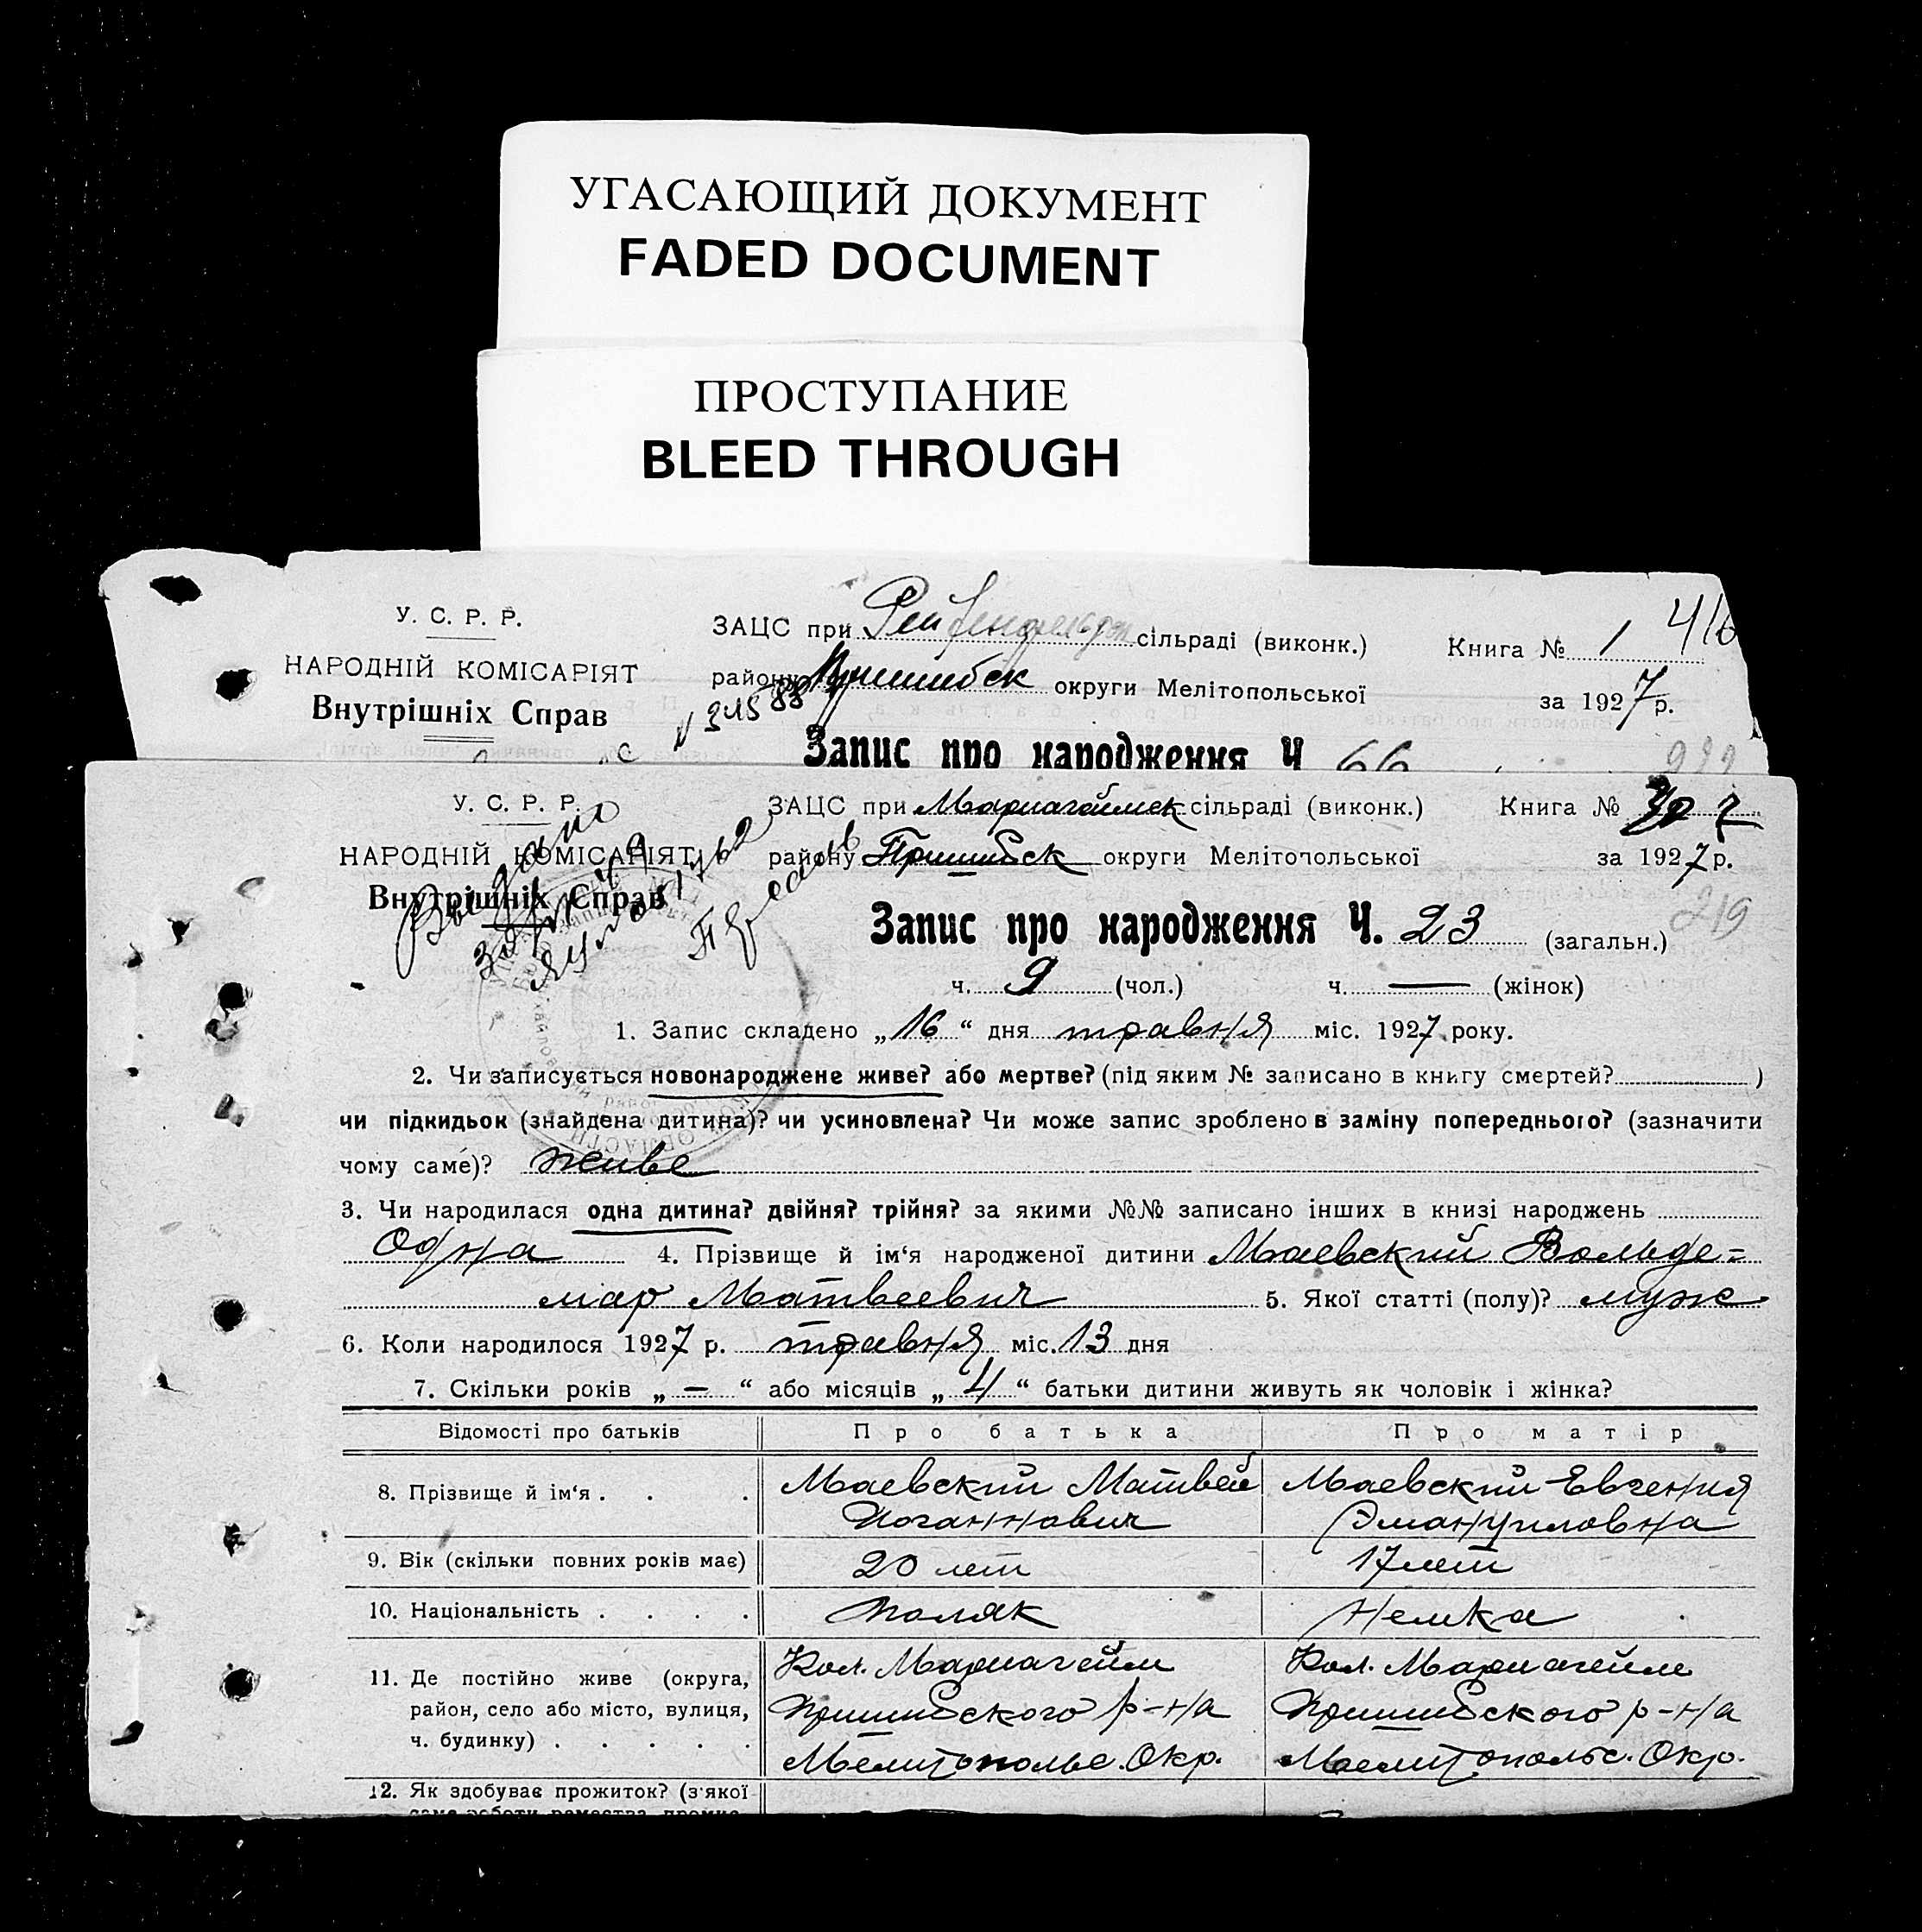 УГАСАЮЩИЙ ДОКУМЕНТ
FADED DOCUMENT
ПРОСТУПАНИЕ
BLEED THROUGH
У. С. Р. Р.
НАРОДНІЙ КОМІСАРІЯТ
Внутрішніх Справ
ЗАЦС при сільраді (виконк.) Книга № 1 416
району Пришибск округи Мелітопольської за 1927 р.
Запис про народження Ч 66
У. С. Р. Р.
НАРОДНІЙ КОМІСАРІЯТ
Внутрішніх Справ
ЗАЦС при Мариагеймск сільраді (виконк.) Книга №
району Пришибск округи Мелітопольської за 1927 р.
219
Запис про народження Ч. 23 (загальн.)
ч. 9 (чол.) ч. — (жінок)
1. Запис складено „16“ дня травня міс. 1927 року.
2. Чи записується новонароджене живе? або мертве? (під яким № записано в книгу смертей? )
чи підкидьок (знайдена дитина)? чи усиновлена? Чи може запис зроблено в заміну попереднього? (зазначити
чому саме)? живе
3. Чи народилася одна дитина? двійня? трійня? за якими №№ записано інших в книзі народжень
Одна 4. Прізвище й ім‘я народженої дитини Маевский Вольде=
мар Матвеевич 5. Якої статті (полу)? муж
6. Коли народилося 1927 р. травня міс. 13 дня
7. Скільки років „—“ або місяців „4“ батьки дитини живуть як чоловік і жінка?
Відомості про батьків Про батька Про матір
8. Прізвище й ім‘я . . . Маевский Матвей Маевский Евгения
Иоганнович Эмануиловна
9. Вік (скільки повних років має) 20 лет 17 лет
10. Національність . . . . Поляк Немка
11. Де постійно живе (округа, Кол. Мариагейм Кол. Мариагейм
район, село або місто, вулиця, Пришибского р-на Пришибского р-на
ч. будинку) . . . . . Мелитопольс. Окр. Мелитопольс. Окр.
12. Як здобуває прожиток? (з'якої